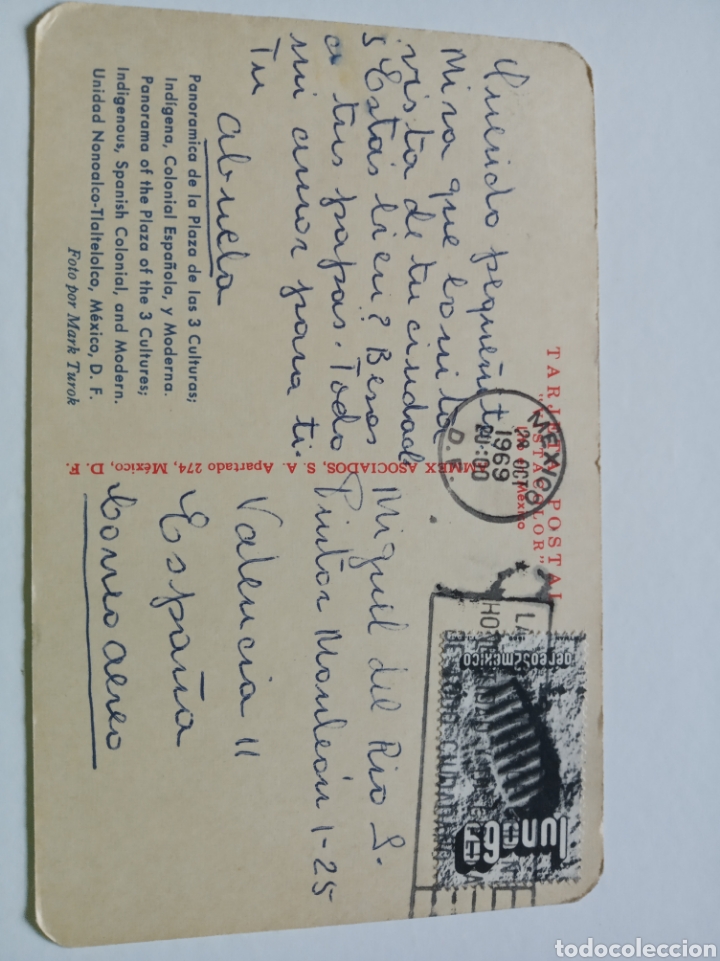 TARJETA POSTAL
"VISTACOLOR"
Querido pequeñito,
Mira que bonita
vista de tu ciudad
Estás bien? Besos
a tus papas. Todo
mi amor para ti.
Tu
abuela
Panoramica de la Plaza de las 3 Culturas;
Indígena, Colonial Española, y Moderna.
Panorama of the Plaza of the 3 Cultures;
Indigenous, Spanish Colonial, and Modern.
Unidad Nonoalco-Tlaltelolco, México, D. F.
Foto por Mark Turok
AMMEX ASOCIADOS, S. A. Apartado 274, México, D. F.
MEXICO
28 OCT
1969
20:00
D. F.
aereo $2 méxico
luna 69
Miguel del Rio S.
Pintor Monleón 1-25
Valencia 11
España
Correo aereo
todocoleccion